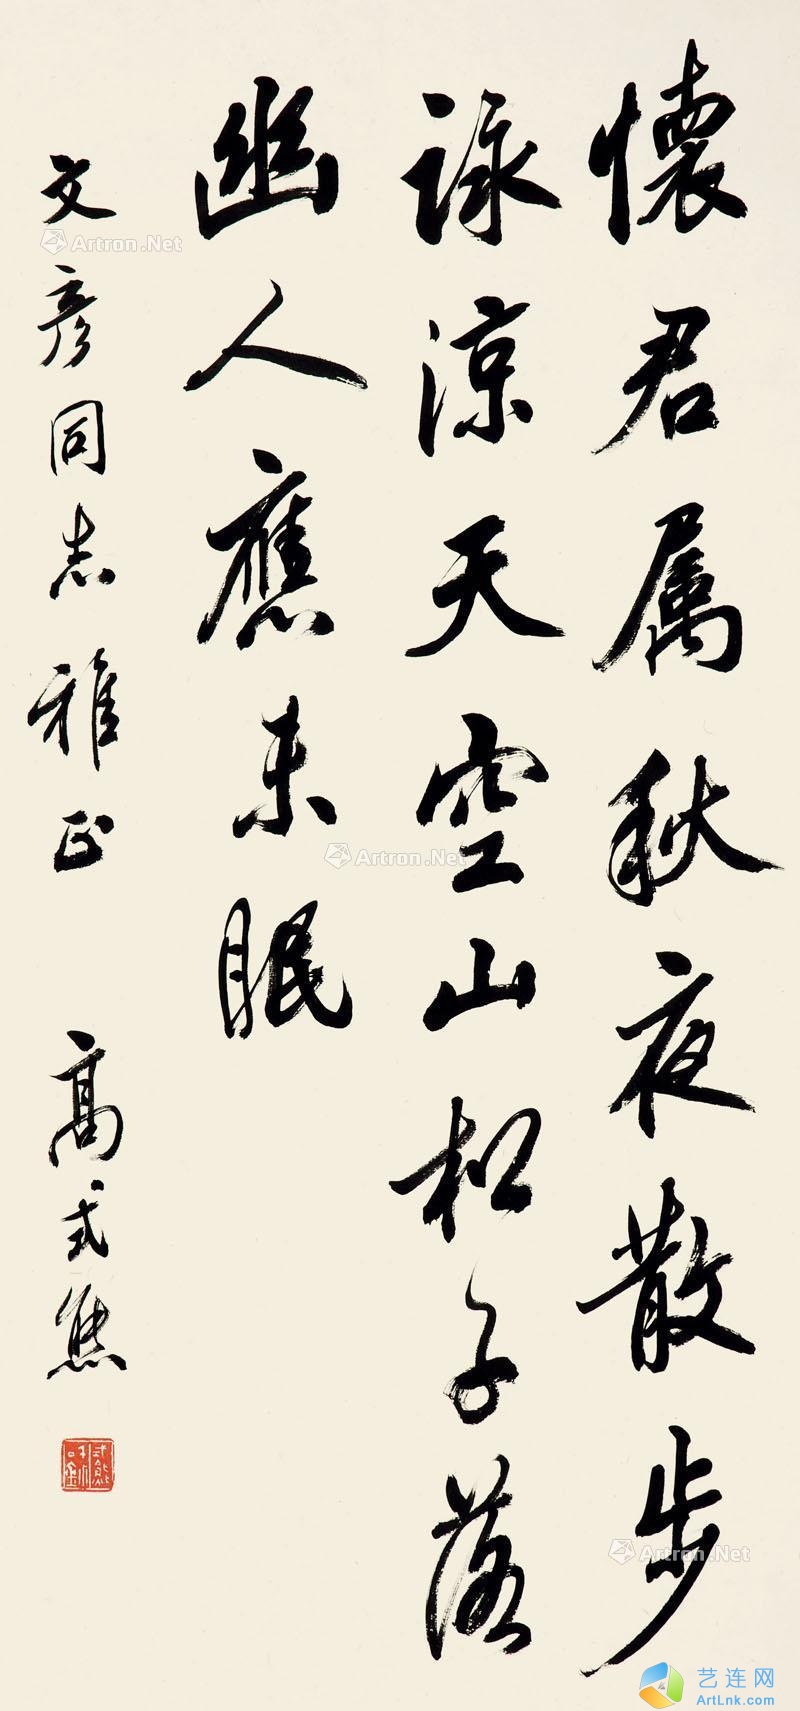 懷君属秋夜散步
詠涼天空山松子落
幽人應未眠
文彦同志雅正
高式熊
Artron.Net
Artron.Net
Artron.Net
艺连网
ArtLnk.com